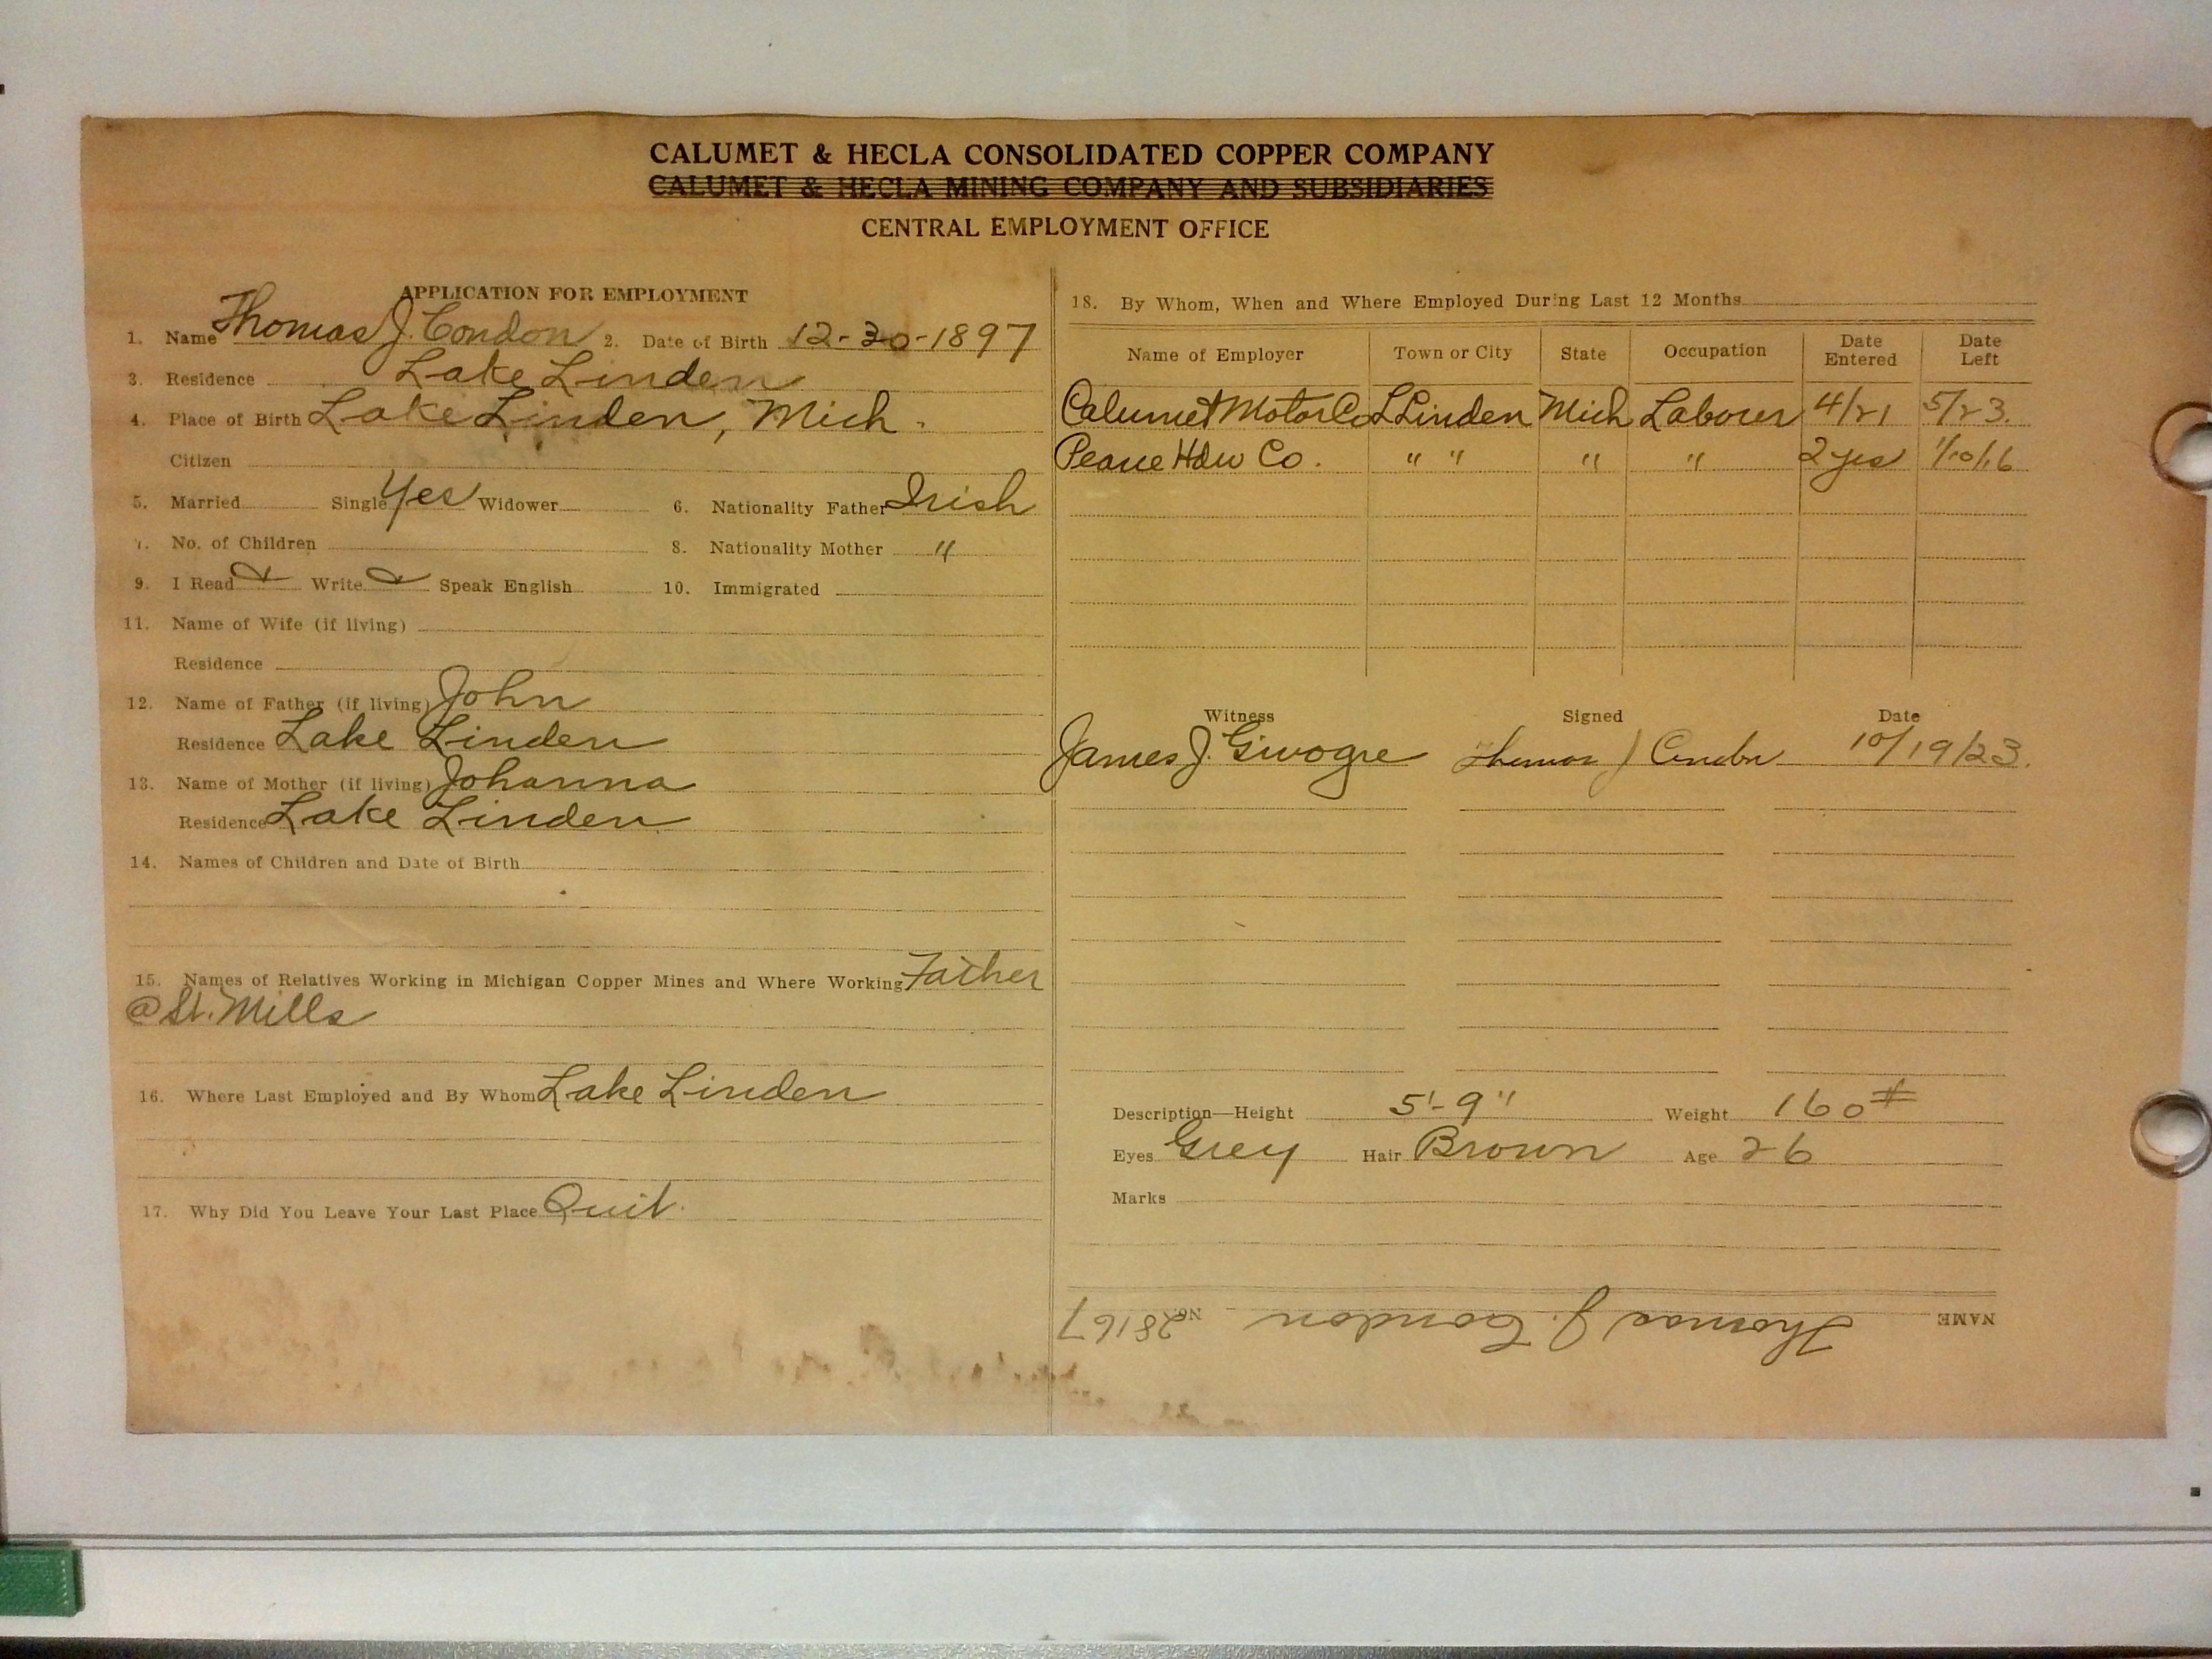 CALUMET & HECLA CONSOLIDATED COPPER COMPANY
CALUMET & HECLA MINING COMPANY AND SUBSIDIARIES
CENTRAL EMPLOYMENT OFFICE
APPLICATION FOR EMPLOYMENT
1. Name Thomas J. Condon 2. Date of Birth 12-30-1897
3. Residence Lake Linden
4. Place of Birth Lake Linden, Mich.
Citizen
5. Married Single Yes Widower 6. Nationality Father Irish
7. No. of Children 8. Nationality Mother "
9. I Read Write Speak English 10. Immigrated
11. Name of Wife (if living)
Residence
12. Name of Father (if living) John
Residence Lake Linden
13. Name of Mother (if living) Johanna
Residence Lake Linden
14. Names of Children and Date of Birth
15. Names of Relatives Working in Michigan Copper Mines and Where Working Father
@ St. Mills
16. Where Last Employed and By Whom Lake Linden
17. Why Did You Leave Your Last Place Quit.
18. By Whom, When and Where Employed During Last 12 Months
Name of Employer Town or City State Occupation Date Entered Date Left
Calumet Motor Co L Linden Mich Laborer 4/21 5/23.
Hdw Co. " " " " 2 yrs
Witness Signed Date
James J. Thomas J Condon 10/19/23.
Description—Height 5'-9" Weight 160#
Eyes Grey Hair Brown Age 26
Marks
NAME Thomas J. Condon No. 28167